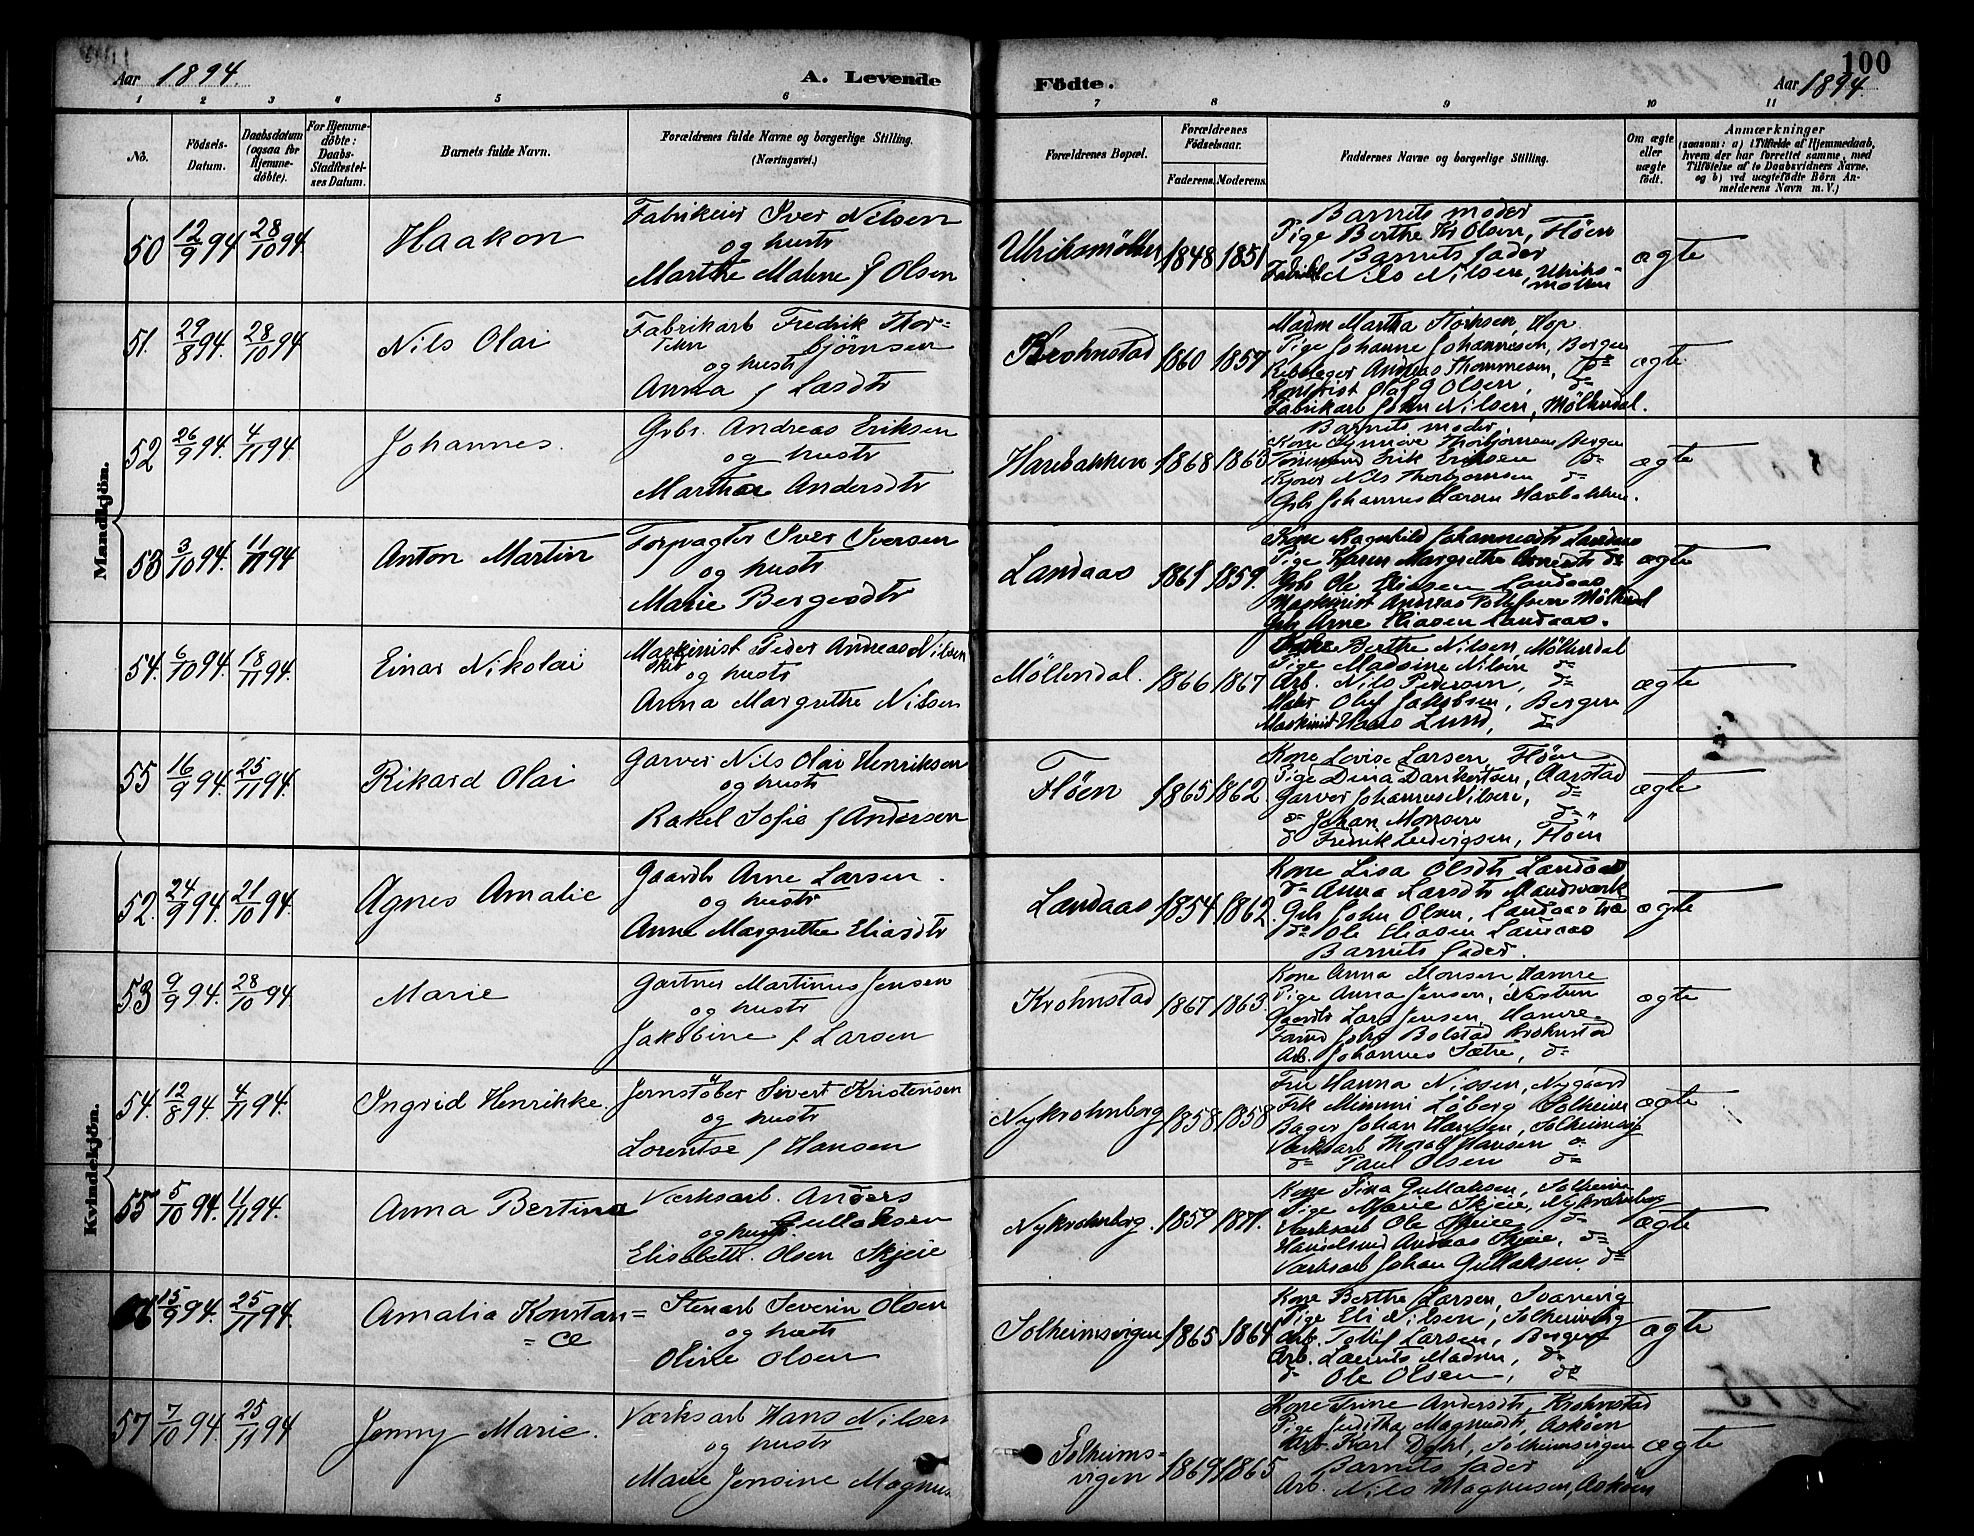 100
Aar 1894. A. Levende
Födte. Aar 1894
1 2 3 4 5 6 7 8 9 10 11
No. Födsels-Datum. Daabsdatum (ogsaa for Hjemme-döbte). For Hjemme-döbte: Daabs-Stadfæstel-ses Datum. Barnets fulde Navn. Forældrenes fulde Navne og borgerlige Stilling. (Næringsvei.)
Forældrenes Bopæl. Forældrenes Födselsaar. Faderens. Moderens. Faddernes Navne og borgerlige Stilling. Om ægte eller uægte födt. Anmærkninger
(saasom: a) i Tilfælde af Hjemmedaab,
hvem der har forrettet samme, med
Tilföielse af to Daabsvidners Navne,
og b) ved uægtefödte Börn An-
melderens Navn m. V.)
Mandkjön.
50 12/9 94 28/10 94. Haakon
Iver Nilsen
og hustr
Marthe Malene f Olsen
1848 1851
Barnets moder
Pige Berthe Olsen, Fløen
Barnets fader
Nils Nilsen, Ulriks-
møllen
ægte
51. 29/8 94. 28/10 94 Nils Olai
Fabrikarb Fredrik Thor=
bjørnsen
og hustr
Anna f Lasdtr
Krohnstad 1860
Madm Martha Hop
Pige Johanne Johannesen, Bergen
Andreas Thommesen, do
Olaf Olsen, do
Fabrikarb John Nilsen, Møllendal.
ægte
52 26/9 94. 4/11 94 Johannes.
Gbr. Andreas Eriksen
og hustr
Martha Andersdtr
Harebakken 1868 1863
Barnets moder
Kone Thorbjørnsen Bergen
Erik Eriksen do
Nils Thorbjørnsen do
Gbr Johannes
ægte
53 3/10 94. 11/11 94 Anton Martin
Iver Iversen
og hustr
Marie
Landaas 1859.
Kone Ragnhild Johannesdtr Landaas
Pige Karen Margrethe do
Gbr Ole Eliasen Landaas
Maskinist Andreas Møllendal
Gbr Arne Eliasen Landaas.
ægte
54. 6/10 94. 18/11 94. Einar Nikolai
Maskinist Peder Andreas Nilsen
og hustr
Anna Margrethe Nilsen
Möllendal. 1866 1867
Kone Berthe Nilsen, Möllendal
Pige Madsine Nilsen do
Arb. Nils Pedersen, do
Maler Oluf Jakobsen, Bergen
Maskinist Lund, do
ægte
55 16/9 94. 25/11 94. Rikard Olai
Garver Nils Olai Henriksen
og hustr
Rakel Sofie f Andersen
Fløen 1865 1862.
Kone Lovise Larsen, Fløen
Pige Dina Dankertsen, Aarstad
Garver Johannes Nilsen, do
do Johan Monsen do
do Fredrik Ludvigsen, Fløen
ægte
Kvindekjön.
52. 24/9 94. 21/10 94. Agnes Amalie
Gaardbr Arne Larsen.
og hustr
Anne Margrethe Eliasdtr
Landaas 1854 1862.
Kone Lisa Olsdtr Landaas
do Anna Larsdtr
Gbr John Olsen, Landaas
do Ole Eliasen Landaas
Barnets fader.
ægte
53 9/9 94. 28/10 94 Marie
Gartner Martinus Jensen
og hustr
Jakobine f Larsen
Krohnstad 1867 1863.
Kone Anna Monsen, Hamre
Pige Anna Jensen, Nestun
Gaardbr Lars Jensen, Hamre.
Bolstad Krohnstad
Arb. Johannes Sætre, do
ægte
54. 12/8 94. 4/11 94. Ingrid Henrikke
Jernstøber Sivert Kristensen
og hustr
Lorentse f Hansen
Nykrohnborg 1858 1858
Fru Hanna Nissen, Nygaard
Frk Mimmi Løberg Solheim
Bager Johan Hansen, Solheimsvig
Værksarb Thoralf Hansen do
do Paul Olsen do
ægte
55 5/10 94. 11/11 94. Anna Bertina
Værksarb. Anders
Gullaksen
og hustr
Elisabeth Olsen Skjeie
Nykrohnborg. 1859
Kone Sina Gullaksen, Solheim
Pige Marie Skjeie, Nykrohnborg
Værksarb Ole Skjeie do
Andreas Skjeie, do
Værksarb Johan Gullaksen, do
ægte
15/9 94. 25/11 94. Amalia Konstan=
=ce
Stenarb Severin Olsen
og hustr
Oline Olsen
Solheimsvigen 1865 1864
Kone Berthe Larsen, Svanevig
Pige Eli Nilsen, Solheimsvig
Arb. Tollif Larsen, Bergen
Arb. Laurits Madsen, do
do Ole Olsen, do
ægte
57 7/10 94. 25/11 94 Jenny Marie.
Værksarb Hans Nilsen
og hustr
Marie Jensine
Solheims-
vigen 1869 1865
Kone Trine Andersdtr, Krohnstad
Pige Juditha Magnusdtr, Askøen
Arb. Karl Dahl, Solheimsvigen
Barnets fader
Arb. Nils Magnusen, Askøen
ægte